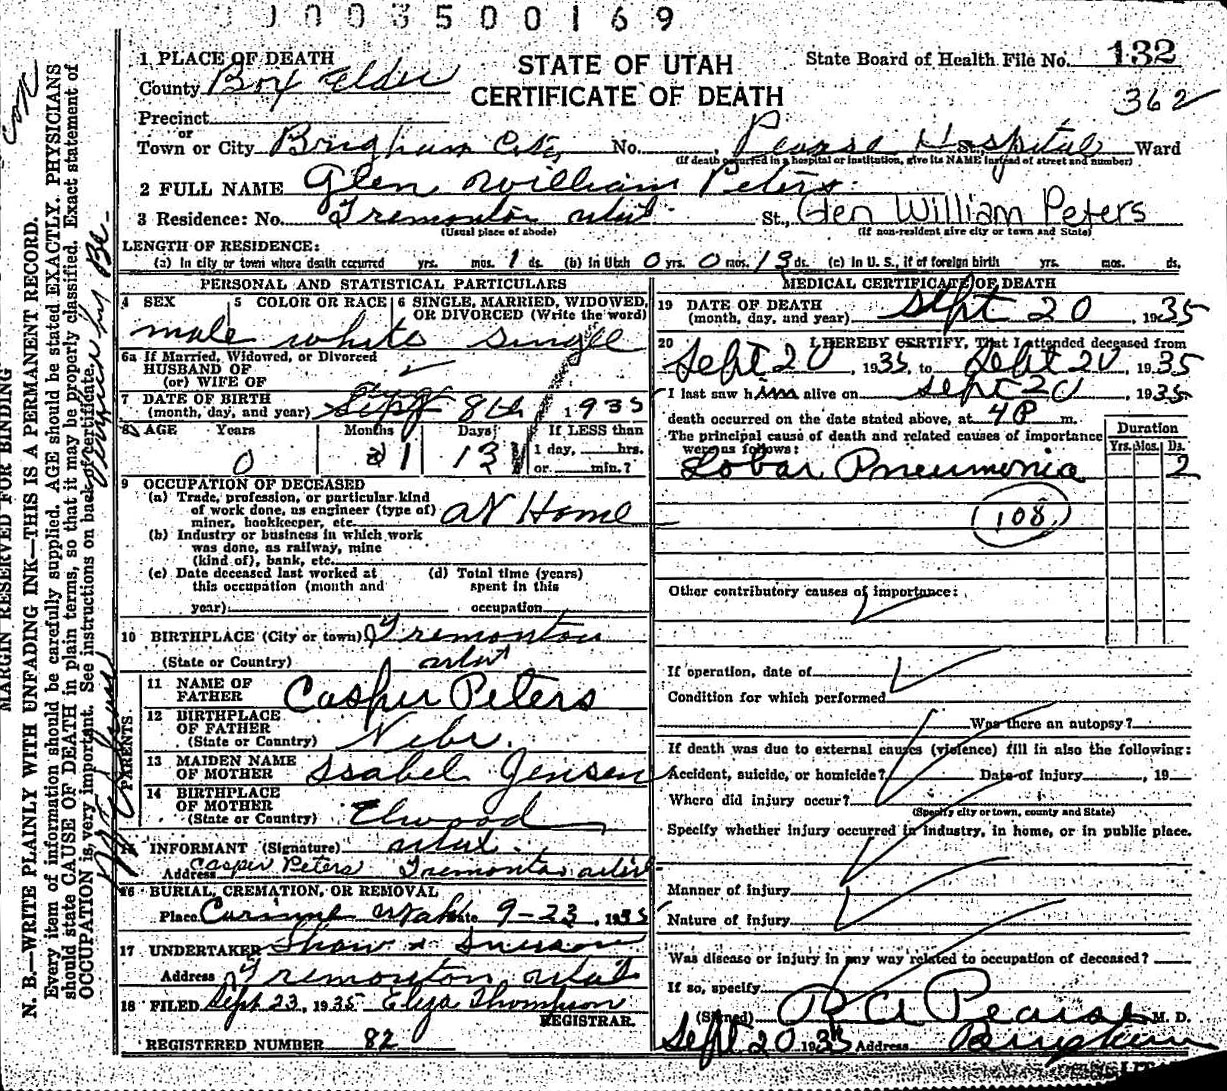 0003500169
1 PLACE OF DEATH
STATE OF UTAH
State Board of Health File No. 132
County Box Elder
CERTIFICATE OF DEATH
362
Precinct
or
Town or City Brigham City No. , Pearse Hospital St., Ward
(If death occurred in a hospital or institution, give its NAME instead of street and number)
2 FULL NAME Glen William Peters
3 Residence: No. Tremonton Utah St., Glen William Peters
(Usual place of abode) (If non-resident give city or town and State)
LENGTH OF RESIDENCE:
(a) In city or town where death occurred yrs. mos. 1 ds. (b) in Utah 0 yrs. 0 mos. 13 ds. (c) in U. S., if of foreign birth yrs. mos. ds.
PERSONAL AND STATISTICAL PARTICULARS
4 SEX 5 COLOR OR RACE 6 SINGLE, MARRIED, WIDOWED, OR DIVORCED (Write the word)
male white single
6a If Married, Widowed, or Divorced
HUSBAND OF
(or) WIFE OF
7 DATE OF BIRTH
(month, day, and year) Sept 8th 1935
8 AGE Years Months Days If LESS than
0 1 13 1 day, hrs.
or min.?
9 OCCUPATION OF DECEASED
(a) Trade, profession, or particular kind
of work done, as engineer (type of)
miner, bookkeeper, etc. at Home
(b) Industry or business in which work
was done, as railway, mine
(kind of), bank, etc.
(c) Date deceased last worked at
this occupation (month and
year)
(d) Total time (years)
spent in this
occupation
10 BIRTHPLACE (City or town) Tremonton
(State or Country) Utah
PARENTS
11 NAME OF
FATHER Casper Peters
12 BIRTHPLACE
OF FATHER
(State or Country) Nebr.
13 MAIDEN NAME
OF MOTHER Isabel Jensen
14 BIRTHPLACE
OF MOTHER
(State or Country) Elwood
15 INFORMANT (Signature) Utah.
Address Casper Peters Tremonton Utah
16 BURIAL, CREMATION, OR REMOVAL
Place Corinne Utah Date 9-23, 1935
17 UNDERTAKER Shaw &
Address Tremonton Utah
18 FILED Sept 23, 1935 Eliza Thompson
REGISTRAR.
REGISTERED NUMBER 82
MEDICAL CERTIFICATE OF DEATH
19 DATE OF DEATH
(month, day, and year) Sept 20, 1935
20 I HEREBY CERTIFY, That I attended deceased from
Sept 20, 1935, to Sept 20, 1935
I last saw him alive on Sept 20, 1935
death occurred on the date stated above, at 4 P m.
The principal cause of death and related causes of importance
were as follows:
Duration
Yrs. Mos. Ds.
Lobar Pneumonia 2
108
Other contributory causes of importance:
If operation, date of
Condition for which performed
Was there an autopsy?
If death was due to external causes (violence) fill in also the following:
Accident, suicide, or homicide? Date of injury , 19
Where did injury occur?
(Specify city or town, county and State)
Specify whether injury occurred in industry, in home, or in public place.
Manner of injury
Nature of injury
Was disease or injury in any way related to occupation of deceased?
If so, specify
(Signed) R A Pearse M. D.
Sept 20 1935 Address Brigham
MARGIN RESERVED FOR BINDING
N. B.—WRITE PLAINLY WITH UNFADING INK—THIS IS A PERMANENT RECORD.
Every item of information should be carefully supplied. AGE should be stated EXACTLY. PHYSICIANS
should state CAUSE OF DEATH in plain terms, so that it may be properly classified. Exact statement of
OCCUPATION is very important. See instructions on back of certificate.